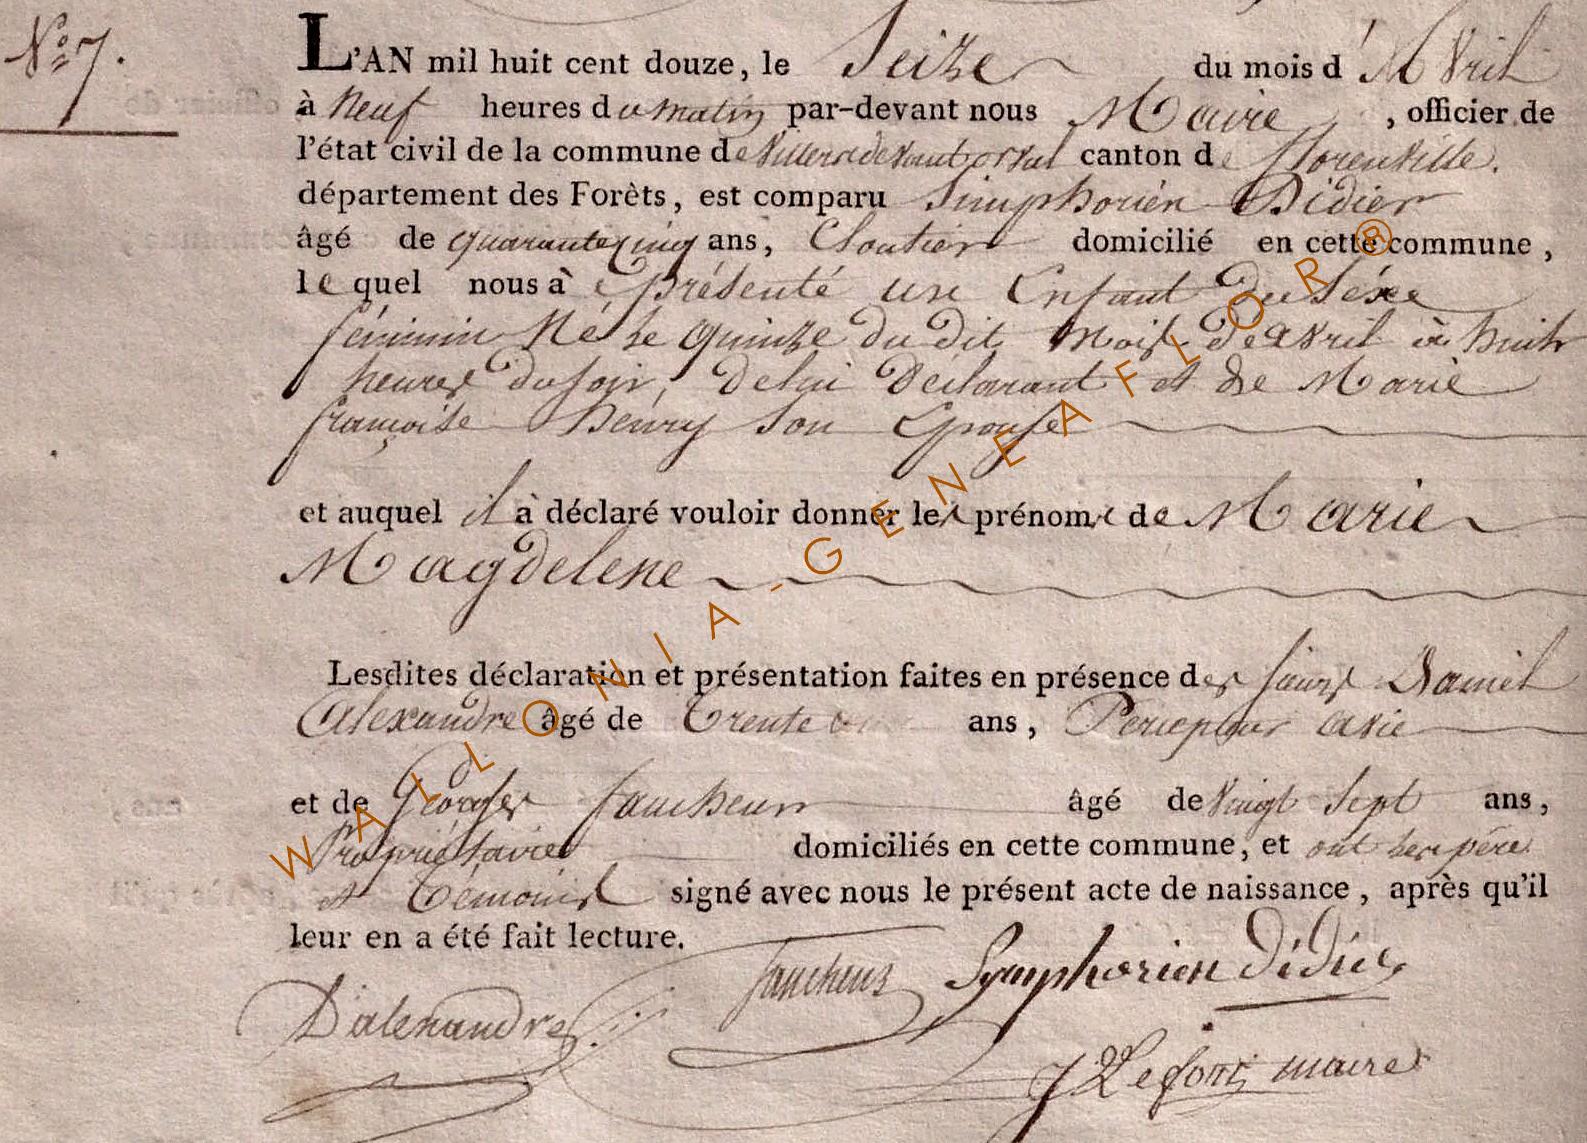 N.° 7.
L'AN mil huit cent douze, le Seize du mois d'Avril
à Neuf heures du matin par-devant nous Maire, officier de
l'état civil de la commune de Villersdevantorval canton de florenville.
département des Forêts, est comparu Simphorien Didier
âgé de quarantecinq ans, Cloutier domicilié en cette commune,
le quel nous à présenté un Enfant du Séxe
féminin Né le quinze du dit mois d'avril à huit
heures du soir, de lui Déclarant et de Marie
françoise henry son Epouse
et auquel il à déclaré vouloir donner les prénoms de Marie
Magdelene
Lesdites déclaration et présentation faites en présence des sieurs Daniel
Alexandre âgé de Trente ans, Percepteur
et de Georges faucheur âgé de Vingt Sept ans,
Propriétaire domiciliés en cette commune, et ont les père
et Témoins signé avec nous le présent acte de naissance, après qu'il
leur en a été fait lecture.
faucheur Symphorien didier
Dalexandre
J Lefort maire
WALLONIA-GENEAFLOR®